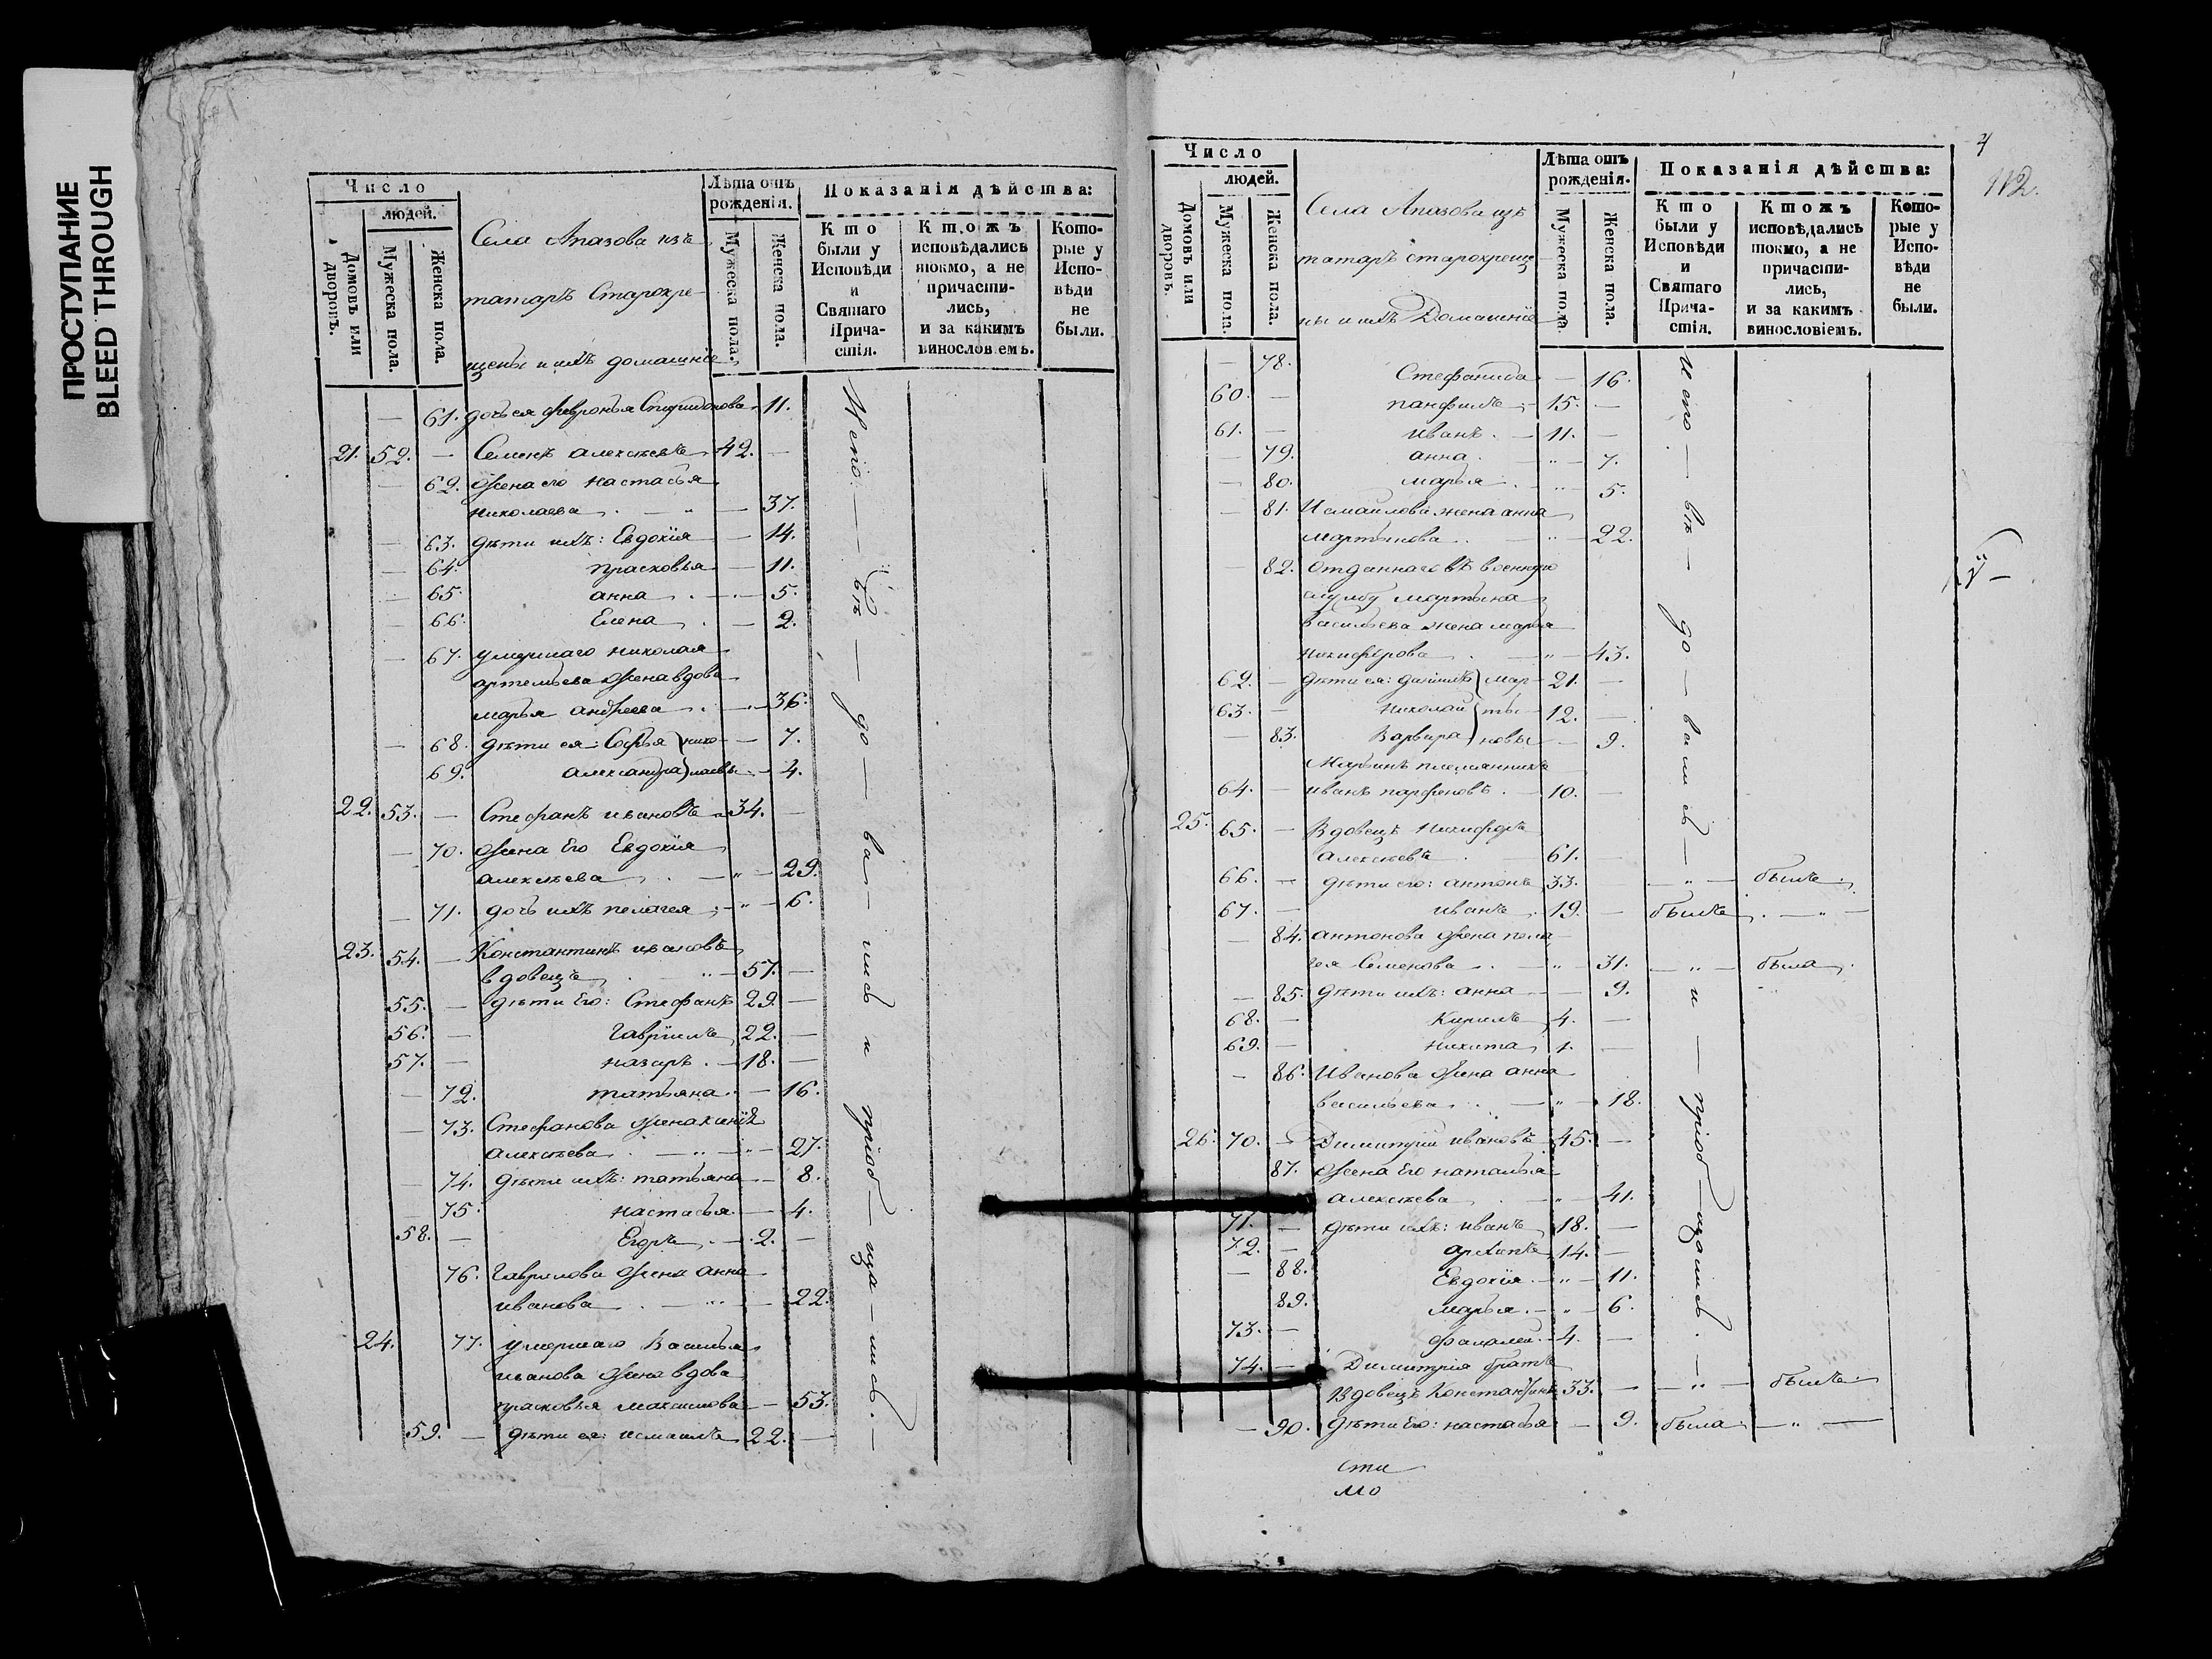 ПРОСТУПАНИЕ
BLEED THROUGH
Число
людей.
Домовъ или дворовъ.
Мужеска пола.
Женска пола.
Села Апазова изъ
татаръ Старокре-
щены и ихъ домашніе
Лѣта отъ рожденія.
Мужеска пола.
Женска пола.
Показанія дѣйства:
Кто были у Исповѣди и Святаго Прича-стія.
Ктожъ исповѣдались токмо, а не причасти-лись, и за какимъ винословіемъ.
Кото-рые у Испо-вѣди не были.
— 61. дочь ея Февронья Спиридонова — 11.
21. 52. — Семенъ Алексѣевъ 42. —
— 62. Жена его Настасья
Николаева — " — 37.
— 63. дѣти ихъ: Евдокія — 14.
— 64. Прасковья — 11.
— 65. Анна — 5.
— 66. Елена — 2.
— 67. умершаго Николая
Артемьева Жена вдова
Марья Андреева — 36.
— 68. дѣти ея: Софья } нико- — 7.
69. Александра } лаевы — 4.
22. 53. — Стефанъ Ивановъ 34. —
— 70. Жена Его Евдокія
Алексѣева — " — 29.
— 71. дочь ихъ Пелагея — " — 6.
23. 54. — Константинъ Ивановъ
вдовецъ " — 57. —
55. — дѣти Его: Стефанъ 29. —
56. — Гавріилъ 22. —
57. — Назаръ — 18. —
— 72. Татьяна — 16.
— 73. Стефанова Жена Ксенія
Алексѣева — " — 27.
— 74. дѣти ихъ: Татьяна — 8.
— 75. Настасья — 4.
58. — Егоръ — 2. —
76. Гаврилова Жена Анна
Иванова — " — 22.
24. 77. умершаго Василья
Иванова Жена вдова
Прасковья Максимова — 53.
59. — дѣти ея: Исмаилъ 22. —
Испо — вѣ — до — ва — лись и пріоб — ща — лись. —
4
112.
Число
людей.
Домовъ или дворовъ.
Мужеска пола.
Женска пола.
Села Апазова изъ
татаръ старокрещ
ны и ихъ Домашніе
Лѣта отъ рожденія.
Мужеска пола.
Женска пола.
Показанія дѣйства:
Кто были у Исповѣди и Святаго Прича-стія.
Ктожъ исповѣдались токмо, а не причасти-лись, и за какимъ винословіемъ.
Кото-рые у Испо-вѣди не были.
— 78. Стефанида — 16.
60. — Панфилъ — 15. —
61. — Иванъ — 11. —
— 79. Анна " — 7.
— 80. Марья " — 5.
— 81. Исмаилова жена Анна
Мартынова — " — 22.
— 82. Отданнаго въ военную
службу Мартына
Васильева жена Марья
Никифорова — " — 43.
62. — дѣти ея: Даніилъ } Мар- 21. —
63. — Николай } ты- 12. —
— 83. Варвара } новы — 9.
Марьинъ племянникъ
64. — Иванъ Парфеновъ — 10. —
25. 65. — Вдовецъ Никифоръ
Алексѣевъ — 61. —
66. — дѣти его: Антонъ 33. — " — былъ.
67. — Иванъ 19. — былъ — " —
— 84. Антонова Жена Пела-
гея Семенова — " — 31. — " — была.
— 85. дѣти ихъ: Анна — 9.
68. — Кирилъ 4. —
69. — Никита 1. —
— 86. Иванова Жена Анна
Васильева — " — 18.
26. 70. — Димитрій Ивановъ 45. —
87. Жена Его Наталья
Алексѣева — " — 41.
71. — дѣти ихъ: Иванъ 18. —
72. — Архипъ 14. —
— 88. Евдокія — " — 11.
89. Марья — " — 6.
73. — Фалалей — 4. —
74. — Димитрія братъ
Вдовецъ Константинъ 33. — — " — былъ.
— 90. дѣти Его: Настасья — 9. была — " —
Испо — вѣ — до — ва ли сь — и — пріоб — щались. —
сти
мо